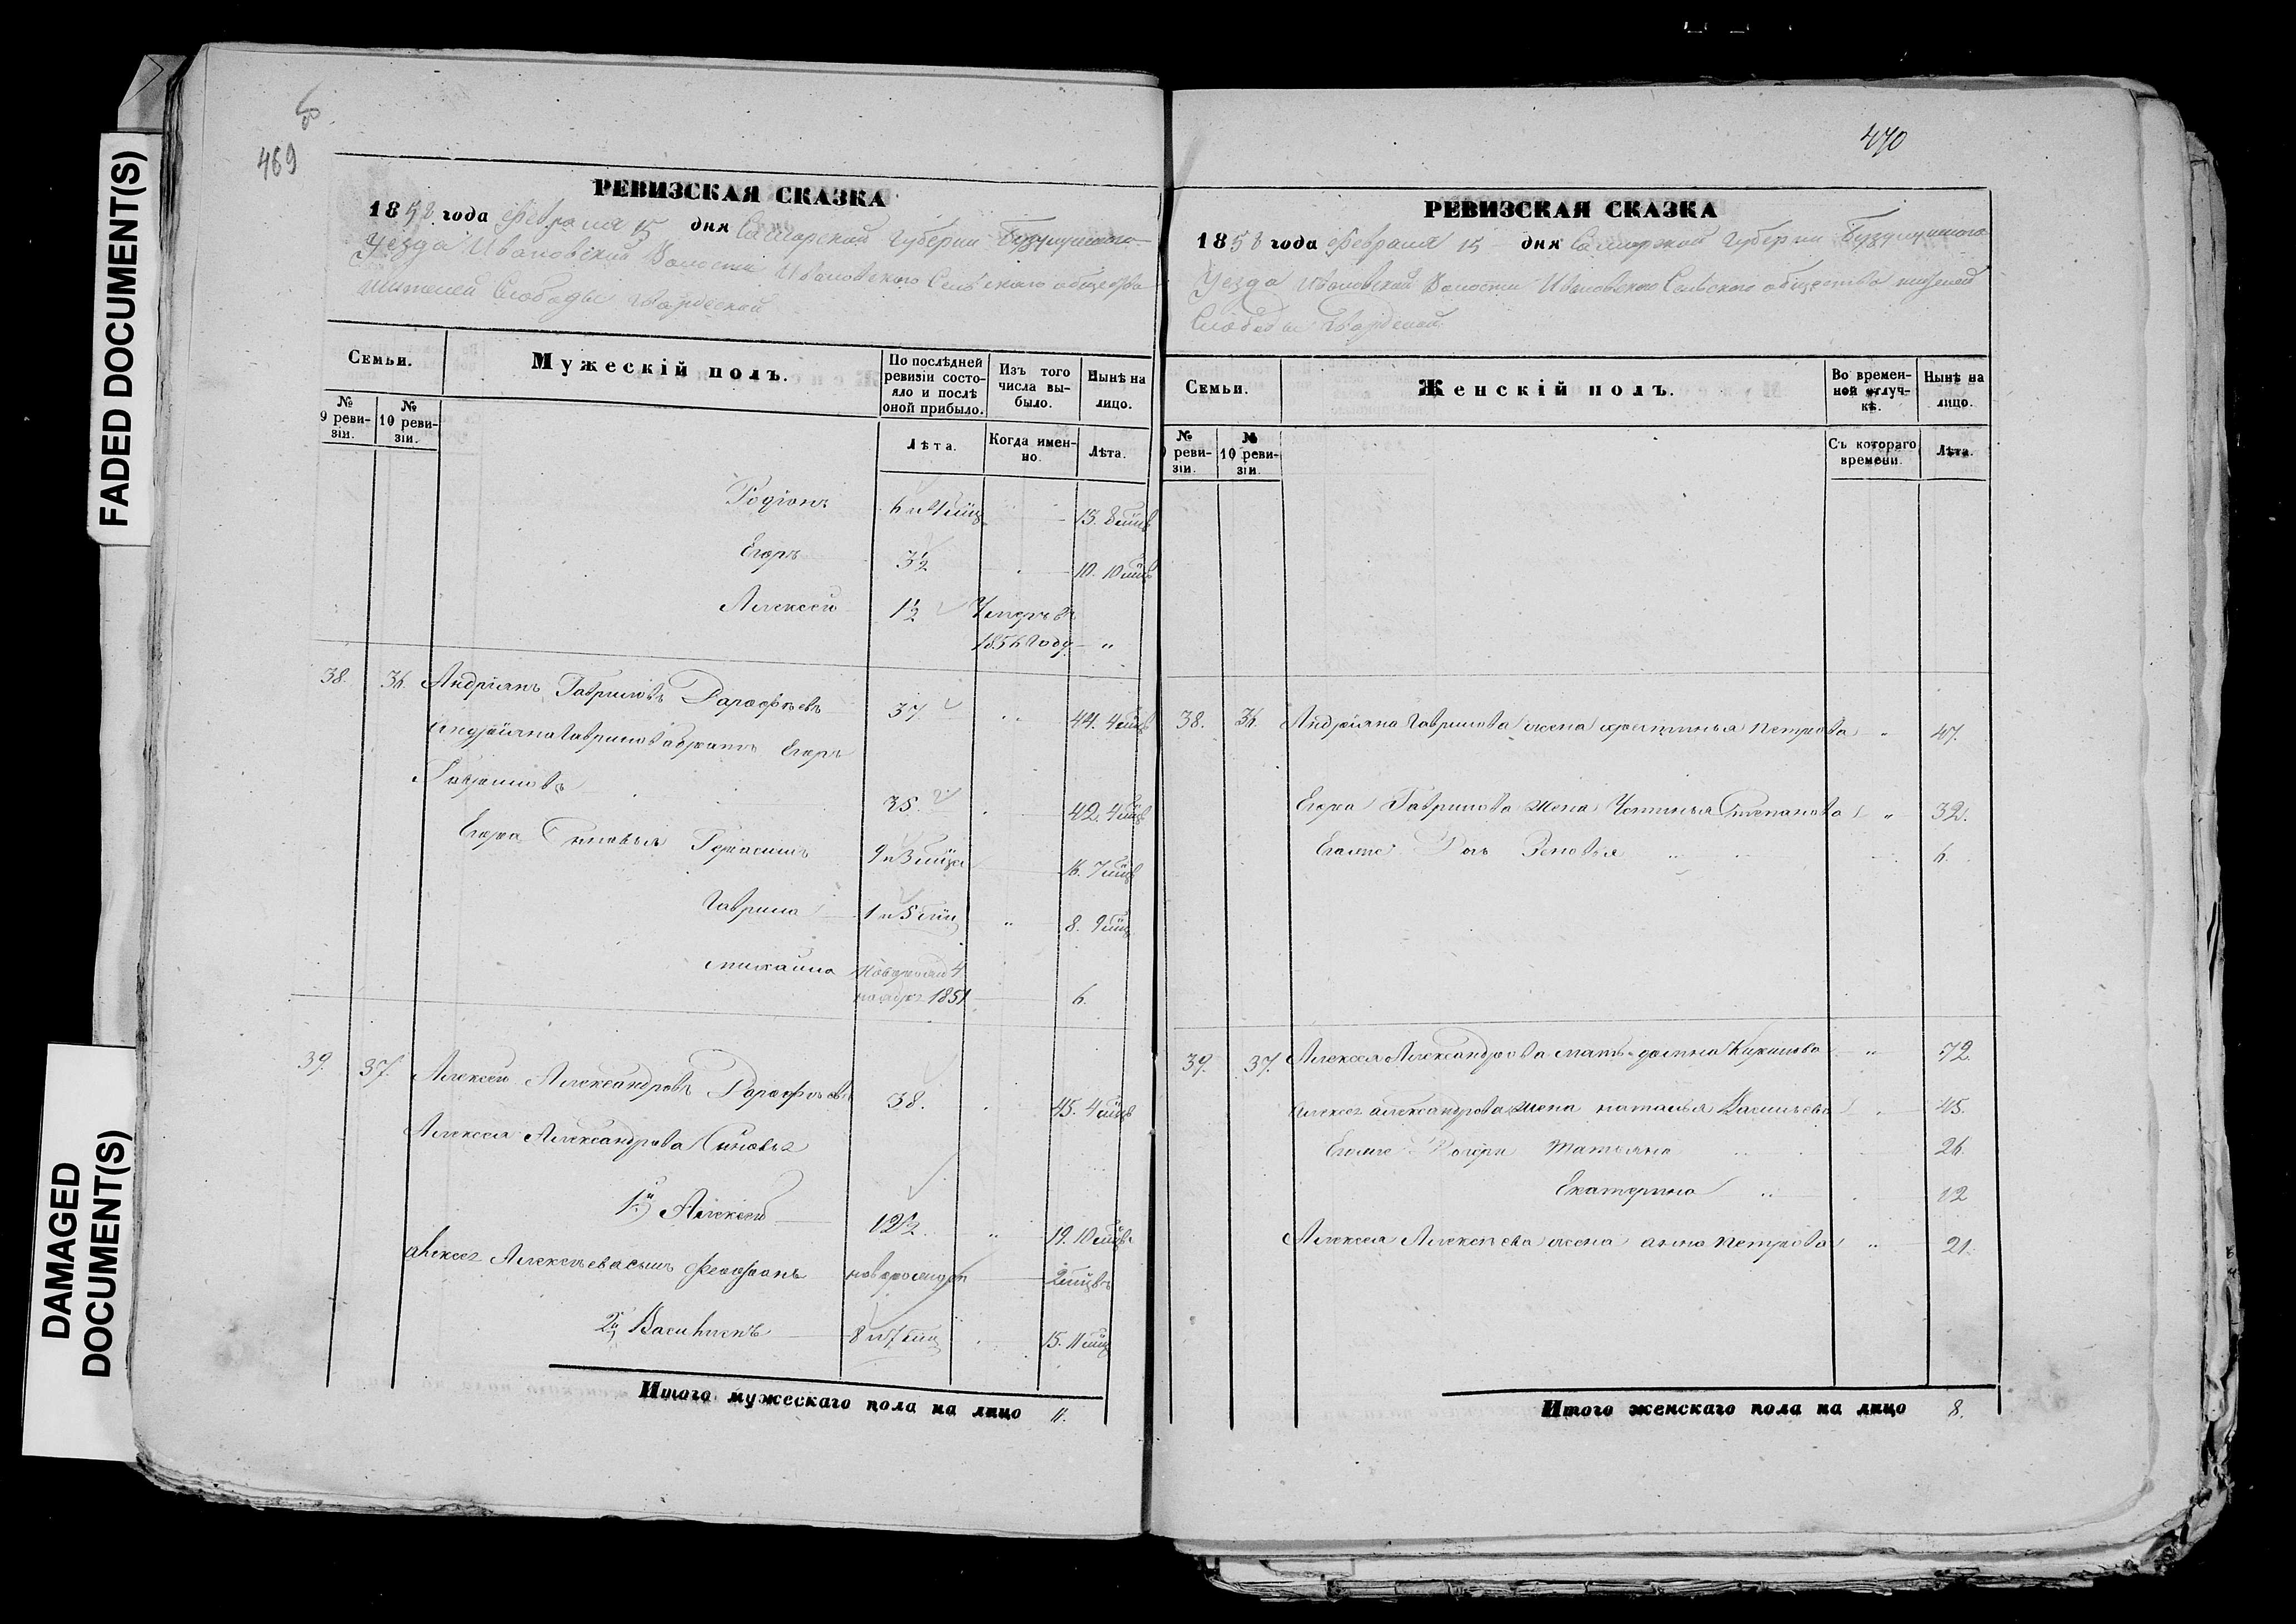 FADED DOCUMENT(S)
DAMAGED
DOCUMENT(S)
469
РЕВИЗСКАЯ СКАЗКА
1858 года Февраля 15 дня Самарской Губернии Бузулуцкого
Уезда Ивановской Волости Ивановского Сельского общества
жителей Слободы Гвардеской
Семьи.
Мужескій полъ.
По послѣдней ревизіи состояло и послѣ оной прибыло.
Изъ того числа выбыло.
Нынѣ на лицо.
№ 9 ревизіи.
№ 10 ревизіи.
Лѣта.
Когда именно.
Лѣта.
Родіонъ 6 и 4 мца 13. 8 мцв
Егоръ 3½ 10. 10 мцв
Алексей 1½ Умеръ въ
1856 году "
38. 36. Андріянъ Гавриловъ Дарофѣевъ 37 44. 4 мцв
Андріяна Гаврилова братъ Егоръ
Гавриловъ 35. 42. 4 мцв
Егора Сыновья Герасимъ 9 и 3 мца 16. 7 мцв
Гаврила 1 и 5 мц " 8. 9 мц
михайла новорожд 4
ноябр 1851 6.
39. 37. Алексей Александровъ Дарофѣевъ 38. 45. 4 мцв
Алексея Александрова Сыновья
1й Алексей 12½. " 19. 10 мцв
Алексея Алексѣева сынъ Феофанъ новорожден 2 мцвъ
2й Василией 8 и 7 мц 15. 11 мц
Итого мужескаго пола на лицо 11.
470
РЕВИЗСКАЯ СКАЗКА
1858 года Февраля 15 дня Самарской Губернии Бузулуцкого
Уезда Ивановской Волости Ивановского Сельского общества жителей
Слободы Гвардеской
Семьи.
Женскій полъ.
Во временной отлучкѣ.
Нынѣ на лицо.
№ ревизіи.
№ 10 ревизіи.
Съ котораго времени.
Лѣта.
38. 36. Андріяна Гаврилова жена хрестинья Петрова " 47.
Егора Гаврилова жена Устинья Степанова " 32.
Егоже Доч Зеновья 6.
39. 37. Алексея Александрова мать домна Кирилова " 72.
Алексея александрова жена наталья Васильева 45.
Егоже Дочери Татьяна 26.
Екатерина " 12
Алексея Алексѣева жена анна Петрова " 21.
Итого женскаго пола на лицо 8.